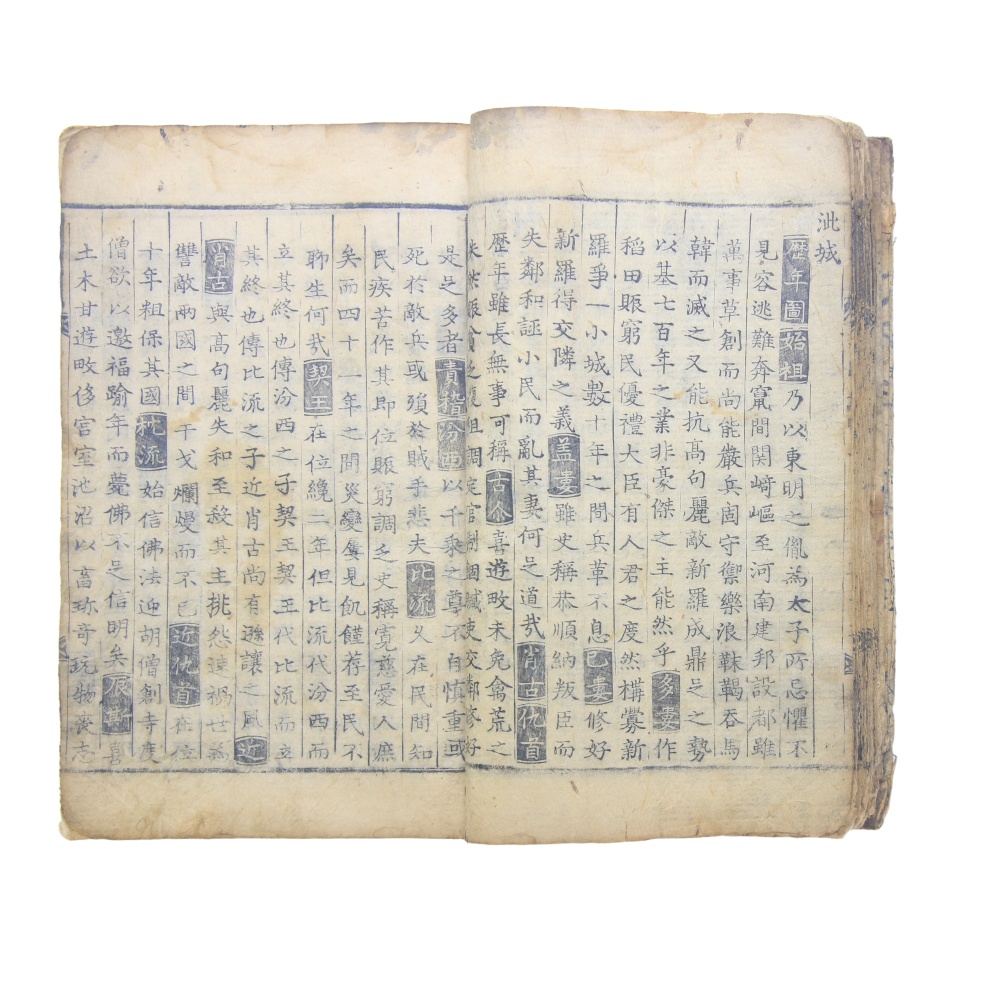 沘城
歷年圖始祖乃以東明之胤為太子所忌懼不
見容逃難奔竄間関﨑嶇至河南建邦設都雖
萬事草創而尚能嚴兵固守禦樂浪靺鞨吞馬
韓而滅之又能抗高句麗敵新羅成鼎足之勢
以基七百年之業非豪傑之主能然乎多婁作
稻田賑窮民優禮大臣有人君之度然構釁新
羅爭一小城數十年之間兵革不息己婁修好
新羅得交隣之義盖婁雖史稱恭順納叛臣而
失鄰和誣小民而亂其妻何足道㢤肖古仇首
歷年雖長無事可稱古尒喜遊畋未免禽荒之
失然賑貧乏復租調定官制
使交鄰修好
是足多者責稽汾西以千乘之尊不自慎重或
死於敵兵或殞於賊手悲夫比流久在民間知
民疾苦作其即位賑窮調乏史稱寛慈愛人庶
矣而四十一年之間災變屢見飢饉荐至民不
聊生何㢤契王在位纔二年但比流代汾西而
立其終也傳汾西之子契王契王代比流而立
其終也傳比流之子近肖古尚有遜讓之風近
肖古與高句麗失和至殺其主挑怨速禍世為
讐敵兩國之間干戈爛熳而不已近仇首在位
十年粗保其國枕流始信佛法迎胡僧創寺度
僧欲以邀福踰年而薨佛不足信明矣辰斯喜
土木甘遊畋侈宮室池沼以畜珎奇玩物喪志